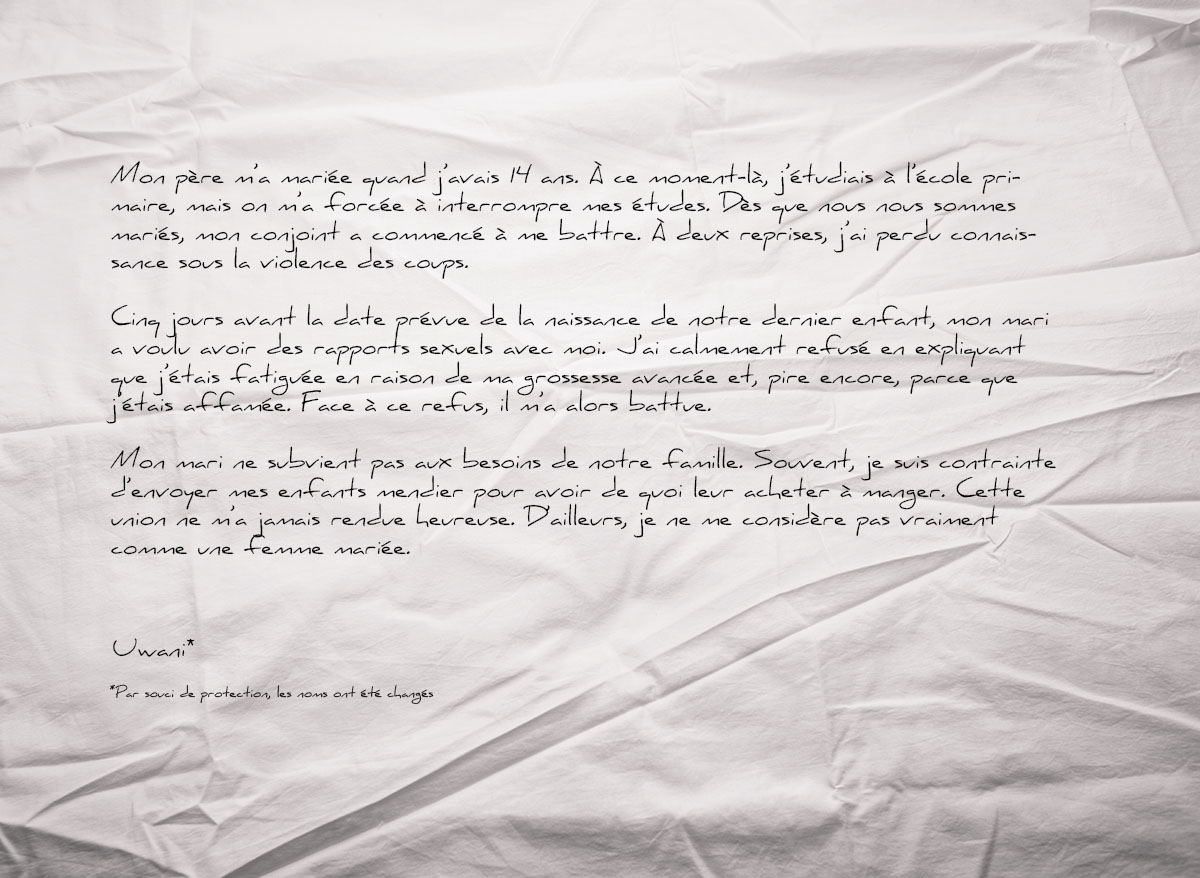 Mon père m'a mariée quand j'avais 14 ans. À ce moment-là, j'étudiais à l'école pri-
maire, mais on m'a forcée à interrompre mes études. Dès que nous nous sommes
mariés, mon conjoint a commencé à me battre. À deux reprises, j'ai perdu connais-
sance sous la violence des coups.
Cinq jours avant la date prévue de la naissance de notre dernier enfant, mon mari
a voulu avoir des rapports sexuels avec moi. J'ai calmement refusé en expliquant
que j'étais fatiguée en raison de ma grossesse avancée et, pire encore, parce que
j'étais affamée. Face à ce refus, il m'a alors battue.
Mon mari ne subvient pas aux besoins de notre famille. Souvent, je suis contrainte
d'envoyer mes enfants mendier pour avoir de quoi leur acheter à manger. Cette
union ne m'a jamais rendue heureuse. D'ailleurs, je ne me considère pas vraiment
comme une femme mariée.
Uwani*
*Par souci de protection, les noms ont été changés